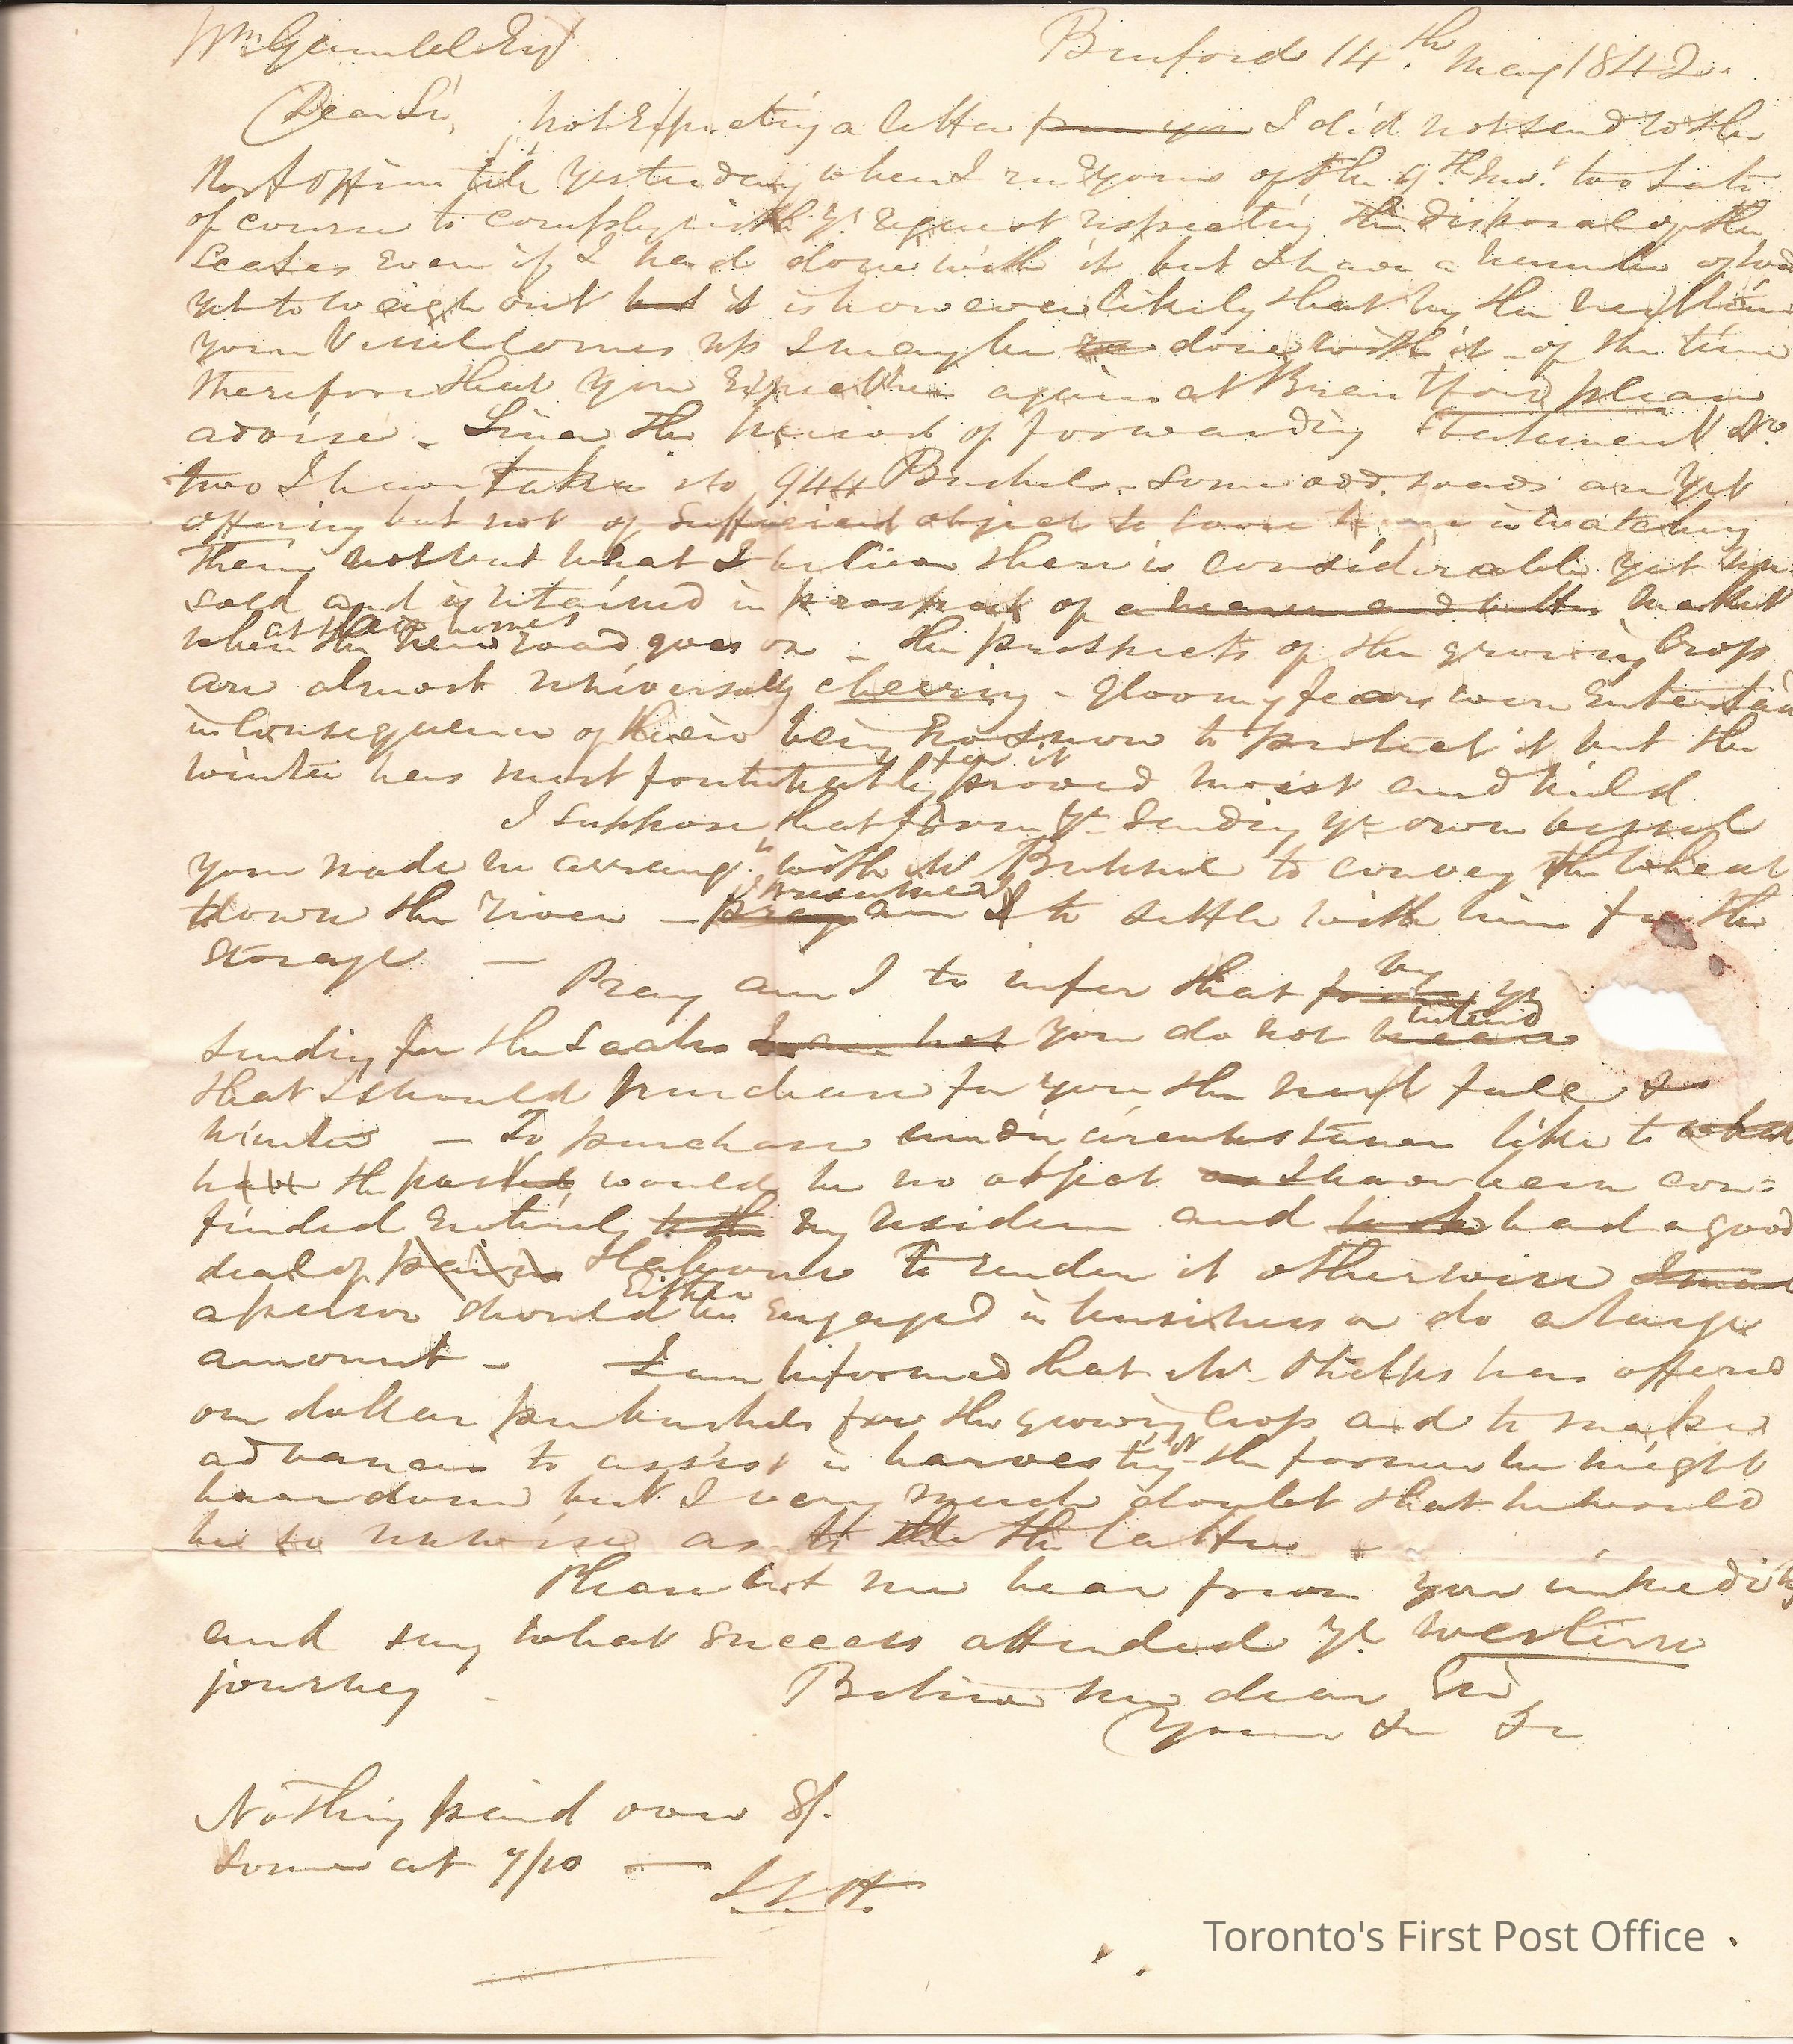 Wm Gamble Esq Burford 14th May 1842.
Dear Sir, not Expecting a letter from you I did not send to the
Post Office till yesterday when I recd yours of the 9th Inst. too late
of course to comply with yr. request respecting the disposal of the
Scales even if I had done with it but I have a number of loads
yet to weigh out but it is however likely that by the next time
your Vessel comes up I may be done with it - of the time
therefore that you Expect her again at Brantford please
advise - Since the period of forwarding Statement No.
two I have taken in 944 Bushels - some odd loads are yet
offering but not of sufficient object to loose time in watching
them not but what I believe there is considerable yet un
sold and is retained in prospect of a nearer and better market
at their homes
when the new road goes on - the prospects of the growing Crop
are almost universally cheering - gloomy fears were Entertain
in Consequence of their being no snow to protect it but the
for it
winter has most fortunately proved moist and mild
I suppose that from yr. sending yr own vessel
you made no arrangts. with Mr to convey the Wheat
I presume
down the river - pray am I to settle with him for the
Storage —
by
Pray am I to infer that from yr
intend
sending for the Scales I am not you do not mean
that I should purchase for you the next fall or
winter — To purchase under circumstances like to what
have the past would be no object as I have been con=
fined entirely to the my residence and had a good
deal of pains to render it otherwise
Either
a person should be Engaged in business or do a large
amount - I am informed that Mr. Phelps has offered
one dollar per bushels for the growing Crop and to make
advances to assist in harvesting it - the former he might
have done but I very much doubt that he would
be so unwise as to the latter -
Please let me hear from you immedity
and say what success attended yr. western
journey - Believe me dear Sir,
Yours &c &c
Nothing paid over 8/.
Some at 7/10 —
Toronto's First Post Office